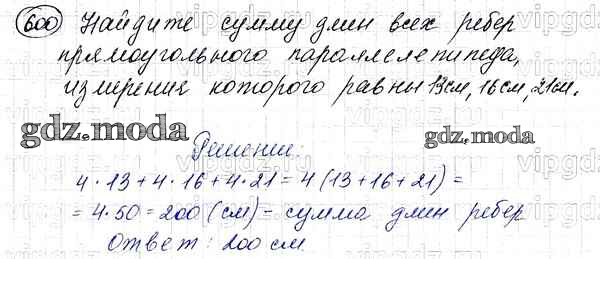 600 Найдите сумму длин всех ребер
прямоугольного параллелепипеда,
измерения которого равны 13см, 16см, 21см.
gdz.moda
gdz.moda
Решение:
4·13+4·16+4·21=4(13+16+21)=
=4·50=200(см)- сумма длин ребер
Ответ: 200 см